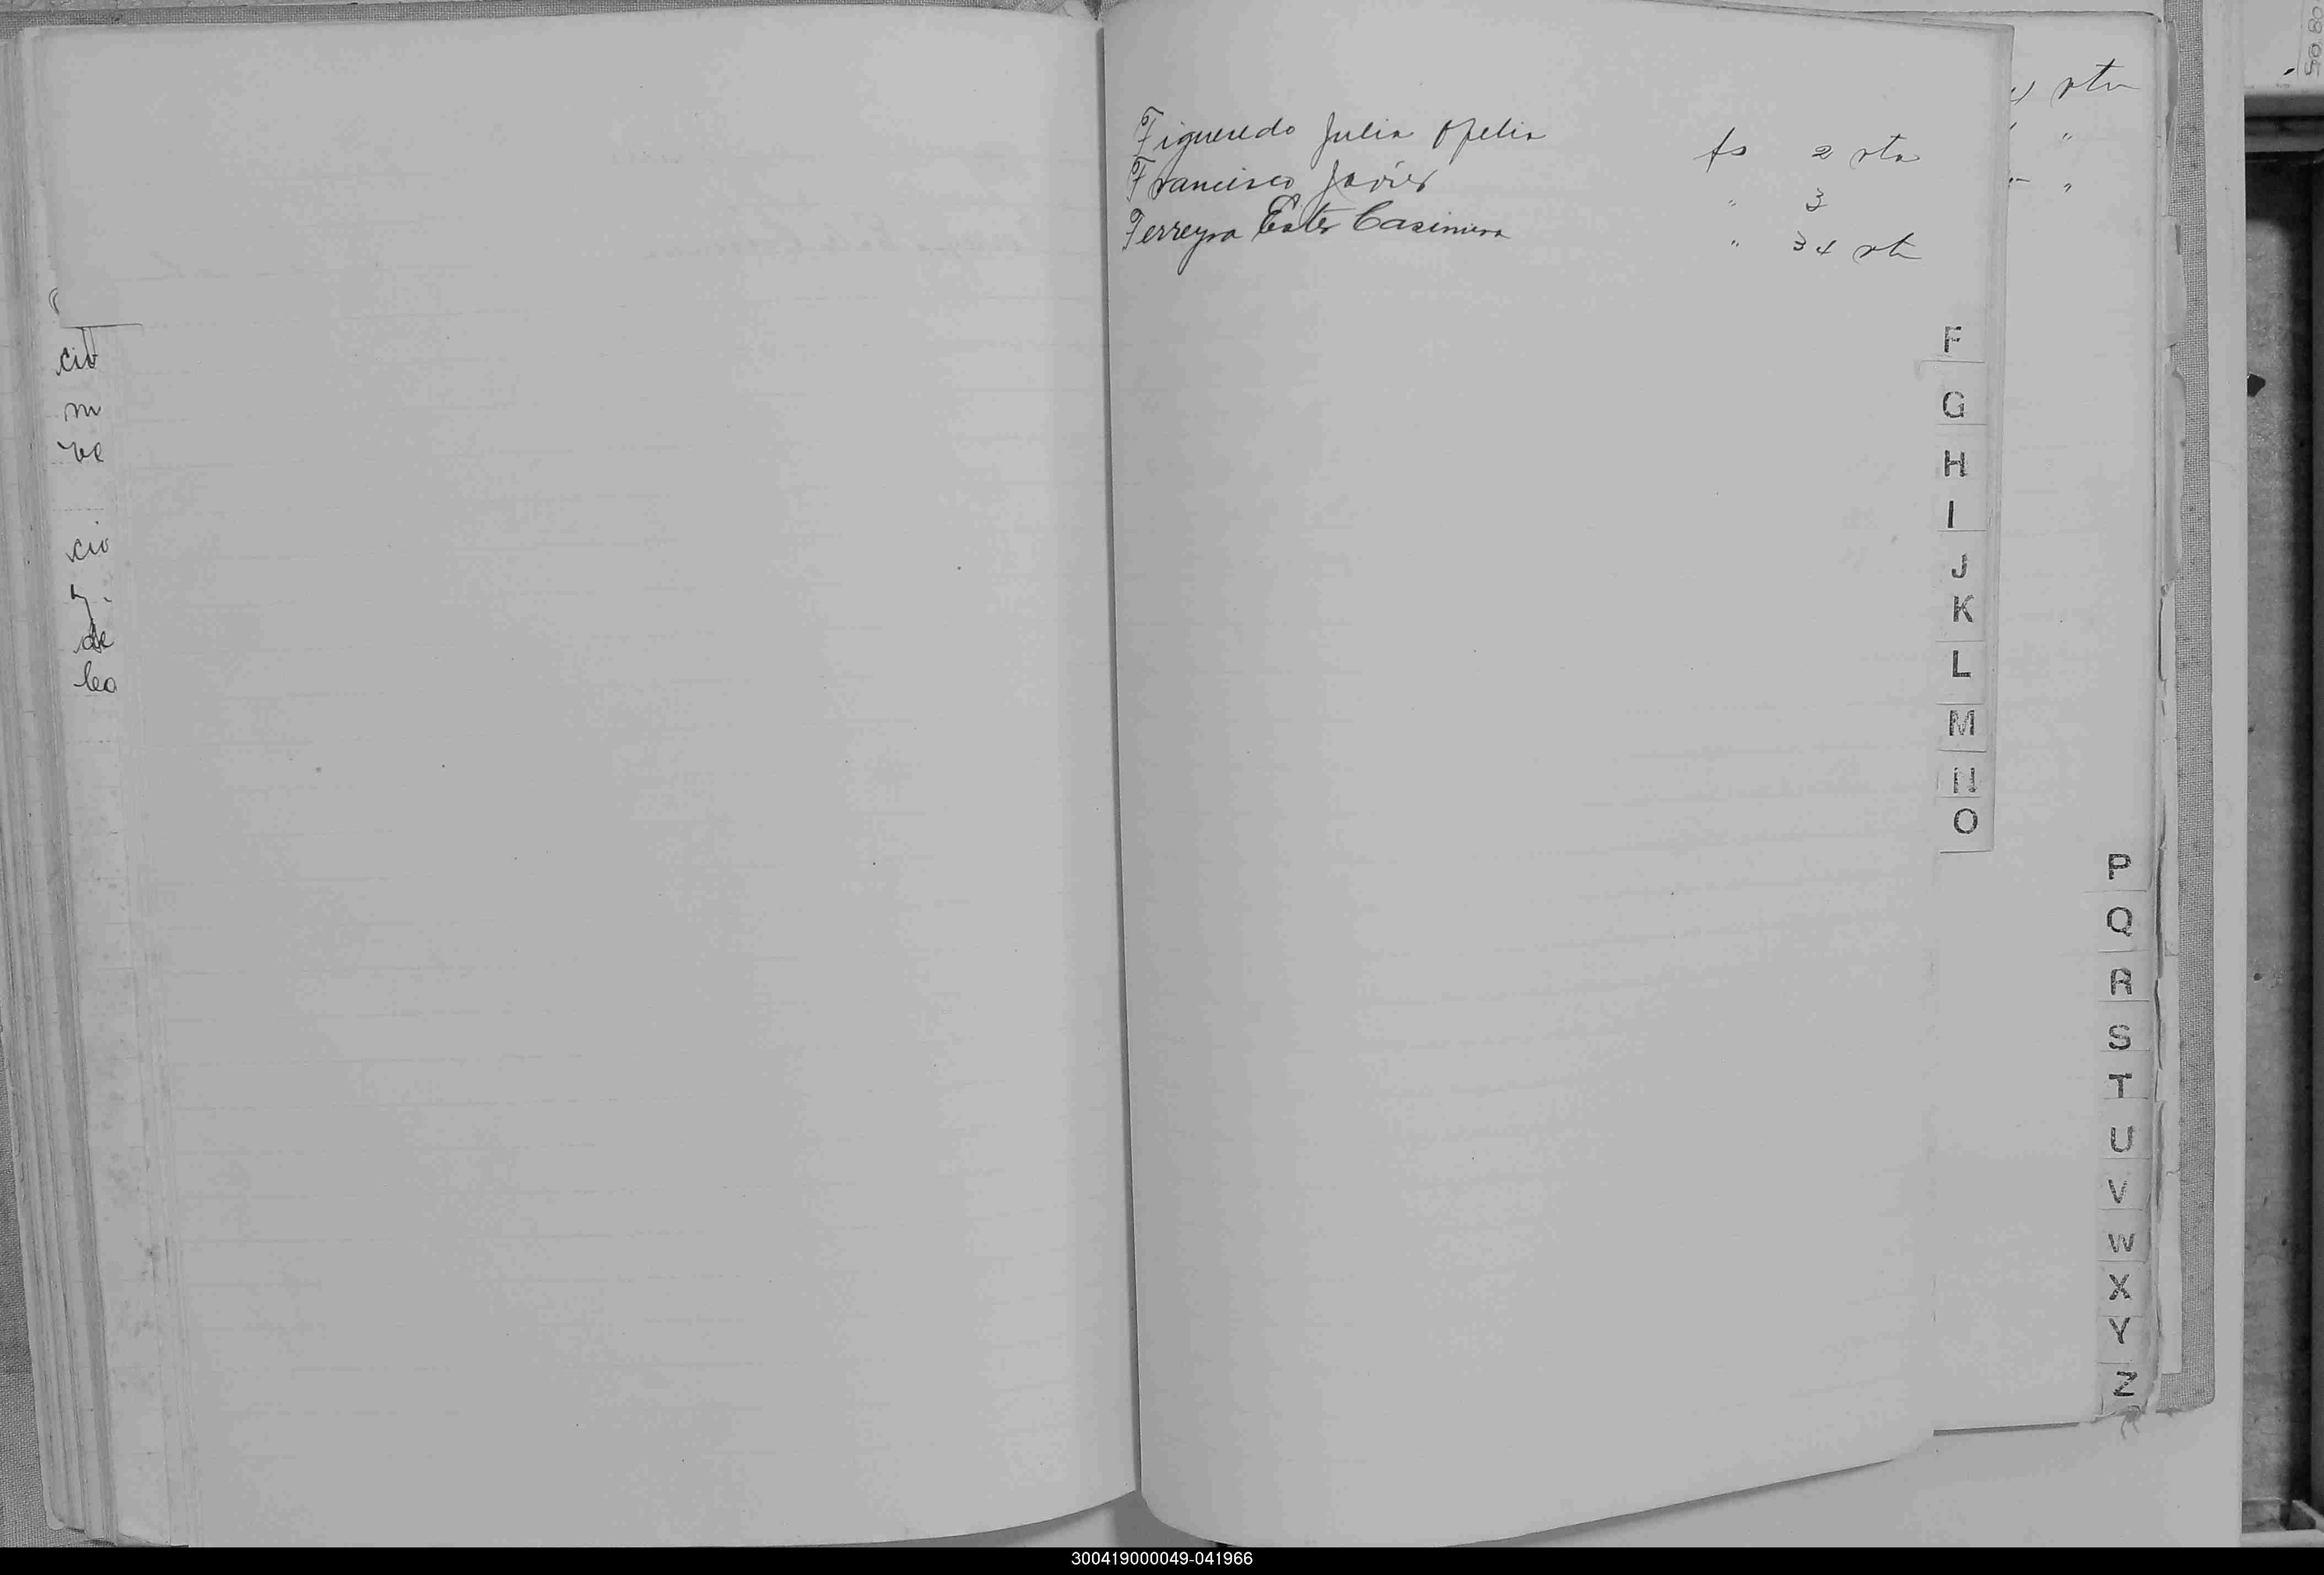 cio
m
ve
cio
y.
de
lea
Figueredo Julia Ofelia fs 2 vta
Francisco Javier " 3
Ferreyra Ester Casimira " 34 vta
4 vta
"
"
F
G
H
I
J
K
L
M
N
O
P
Q
R
S
T
U
V
W
X
Y
Z
300419000049-041966